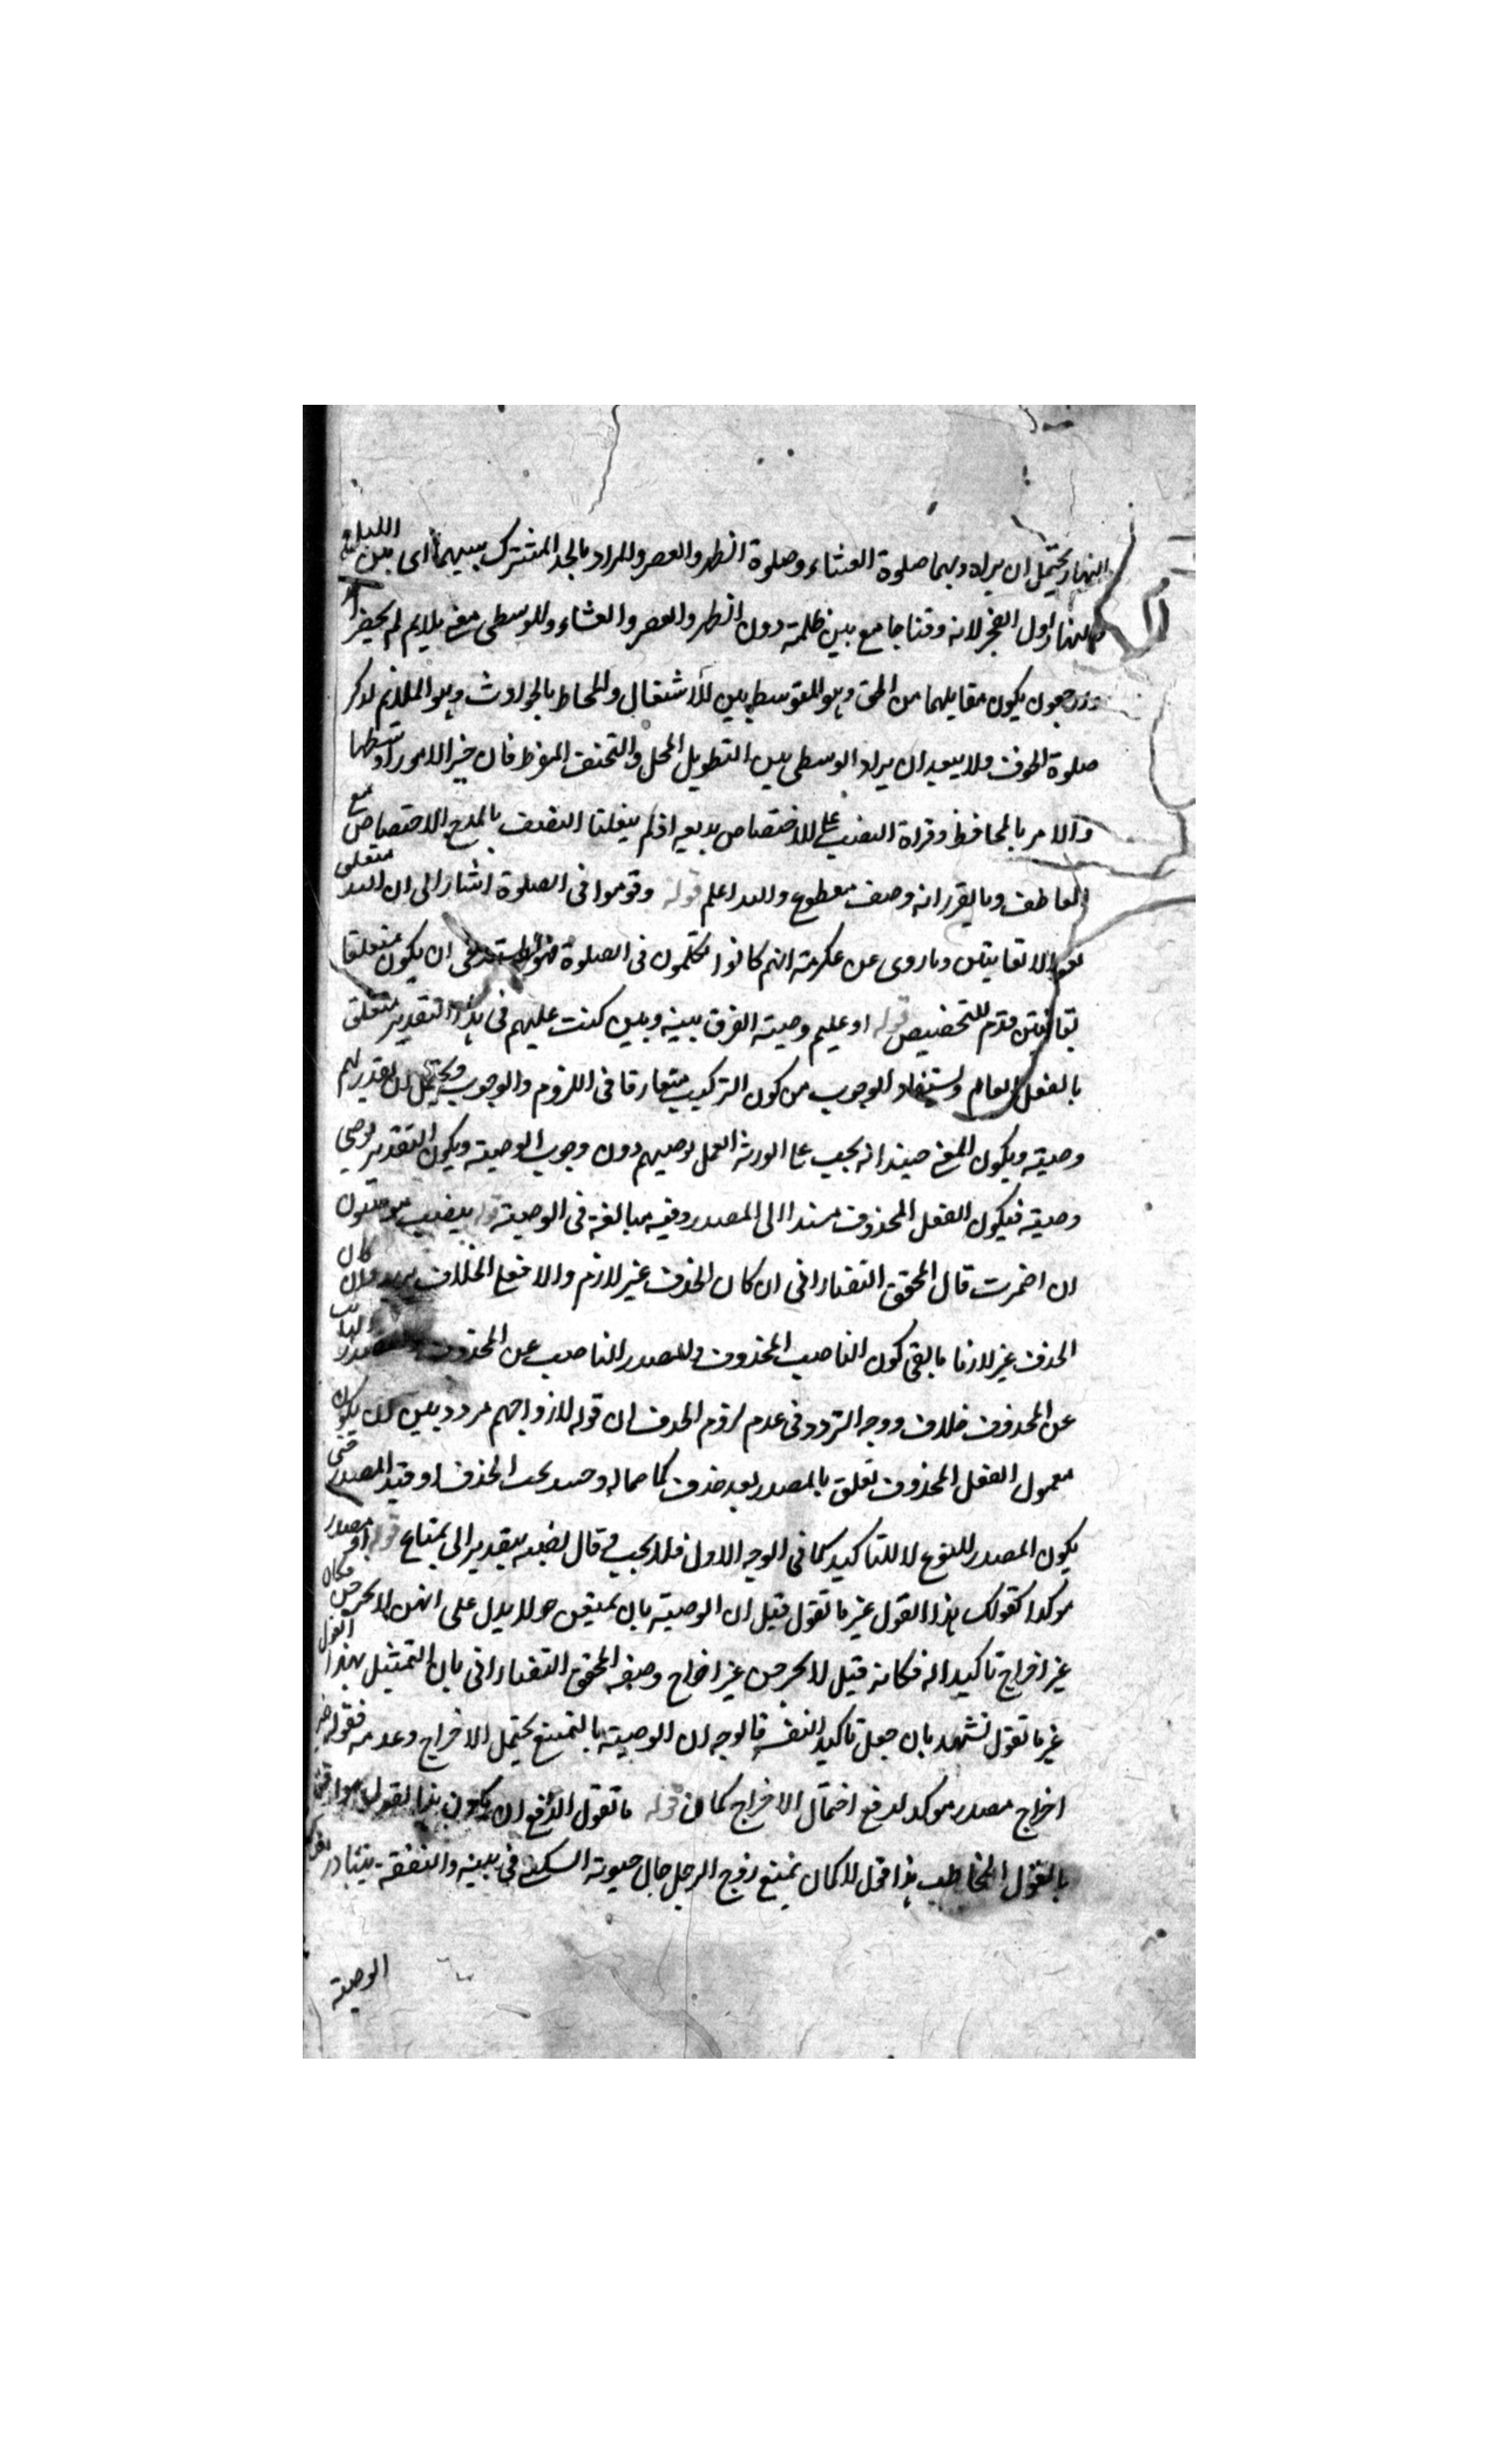 النهار ويحتمل ان يراد بهما صلوة العشاء وصلوة الظهر والعصر والمراد بالحد المشترك بينهما اى بين الليل
والنهار اول الفجر لانه وقتا جامع بين ظلمة دون الظهر والعصر والعشاء وللوسطى معنى يلايم لم يحضر
يكون مقابلهما من الحق وهو المتوسط بين الاشتغال والمحاط بالحوادث وهو الملايم لذكر
صلوة الخوف ولا يبعد ان يراد الوسطى بين التطويل المخل والتخفيف المفرط فان خير الامور اوسطها
والامر بالمحافظة وقراة النصب على الاختصاص بديعه اذ لم ينقلنا النصب بالمدح الاختصاص مع
العاطف وما يقرر انه وصف مقطوع والله اعلم قوله وقوموا فى الصلوة اشار الى ان لله متعلق
بقوموا لا بقانتين وما روى عن عكرمة انهم كانوا يتكلمون فى الصلوة فنهوا يستدعى ان يكون متعلقا
بقانتين قدم للتخصيص قوله او عليهم وصية الفرق بينه وبين كتب عليهم فى هذا التقدير متعلق
بالفعل العام ويستفاد الوجوب من كون التركيب متعارفا فى اللزوم والوجوب ويحتمل ان يقدر لهم
وصية ويكون المعنى حينئذ انه يجب على الورثة العمل بوصيتهم دون وجوب الوصية ويكون التقدير يوصى
وصية فيكون الفعل المحذوف مسندا الى المصدر وفيه مبالغة فى الوصية قوله ينصب بيوصون
ان اضمرت قال المحقق التفتازانى ان كان الحذف غير لازم والا فعلى الخلاف يريد وان كان
الحذف غير لازما بالقى كون الناصب المحذوف والمصدر الناصب عن المحذوف
عن المحذوف خلاف ووجه التردد فى عدم لزوم الحذف ان قوله لازواجهم مردد بين ان يكون
معمول الفعل المحذوف تعلق بالمصدر بعد حذف كما حماله وحسد يجب الحذف او قيد المصدر حتى
يكون المصدر للنوع لا للتاكيد كما فى الوجه الاول فلا يجب قال نصبه بتقدير الى بمتاع قوله او مصدر
موكد كقولك هذا القول غير ما تقول قيل ان الوصية بان يمتعن حولا يدل على انهن لا يخرجن فكان
غير اخراج تاكيدا له فكانه قيل لا يخرجن غير اخراج وصفه المحقق التفتازانى بان التمثيل بهذا القول
غير ما تقول تشهد بان جعل تاكيد النفسه فالوجه ان الوصية بالتمتيع يحتمل الاخراج وعدمه فقوله غير
اخراج مصدر موكد لدفع احتمال الاخراج كما ان قوله ما تقول الدفع ان يكون هذا القول موافقا
بالقول المخاطب هذا لما كان تمتيع زوج الرجل حال حيوته السكنى فى بيته والنفقة يتبادر
الوصية